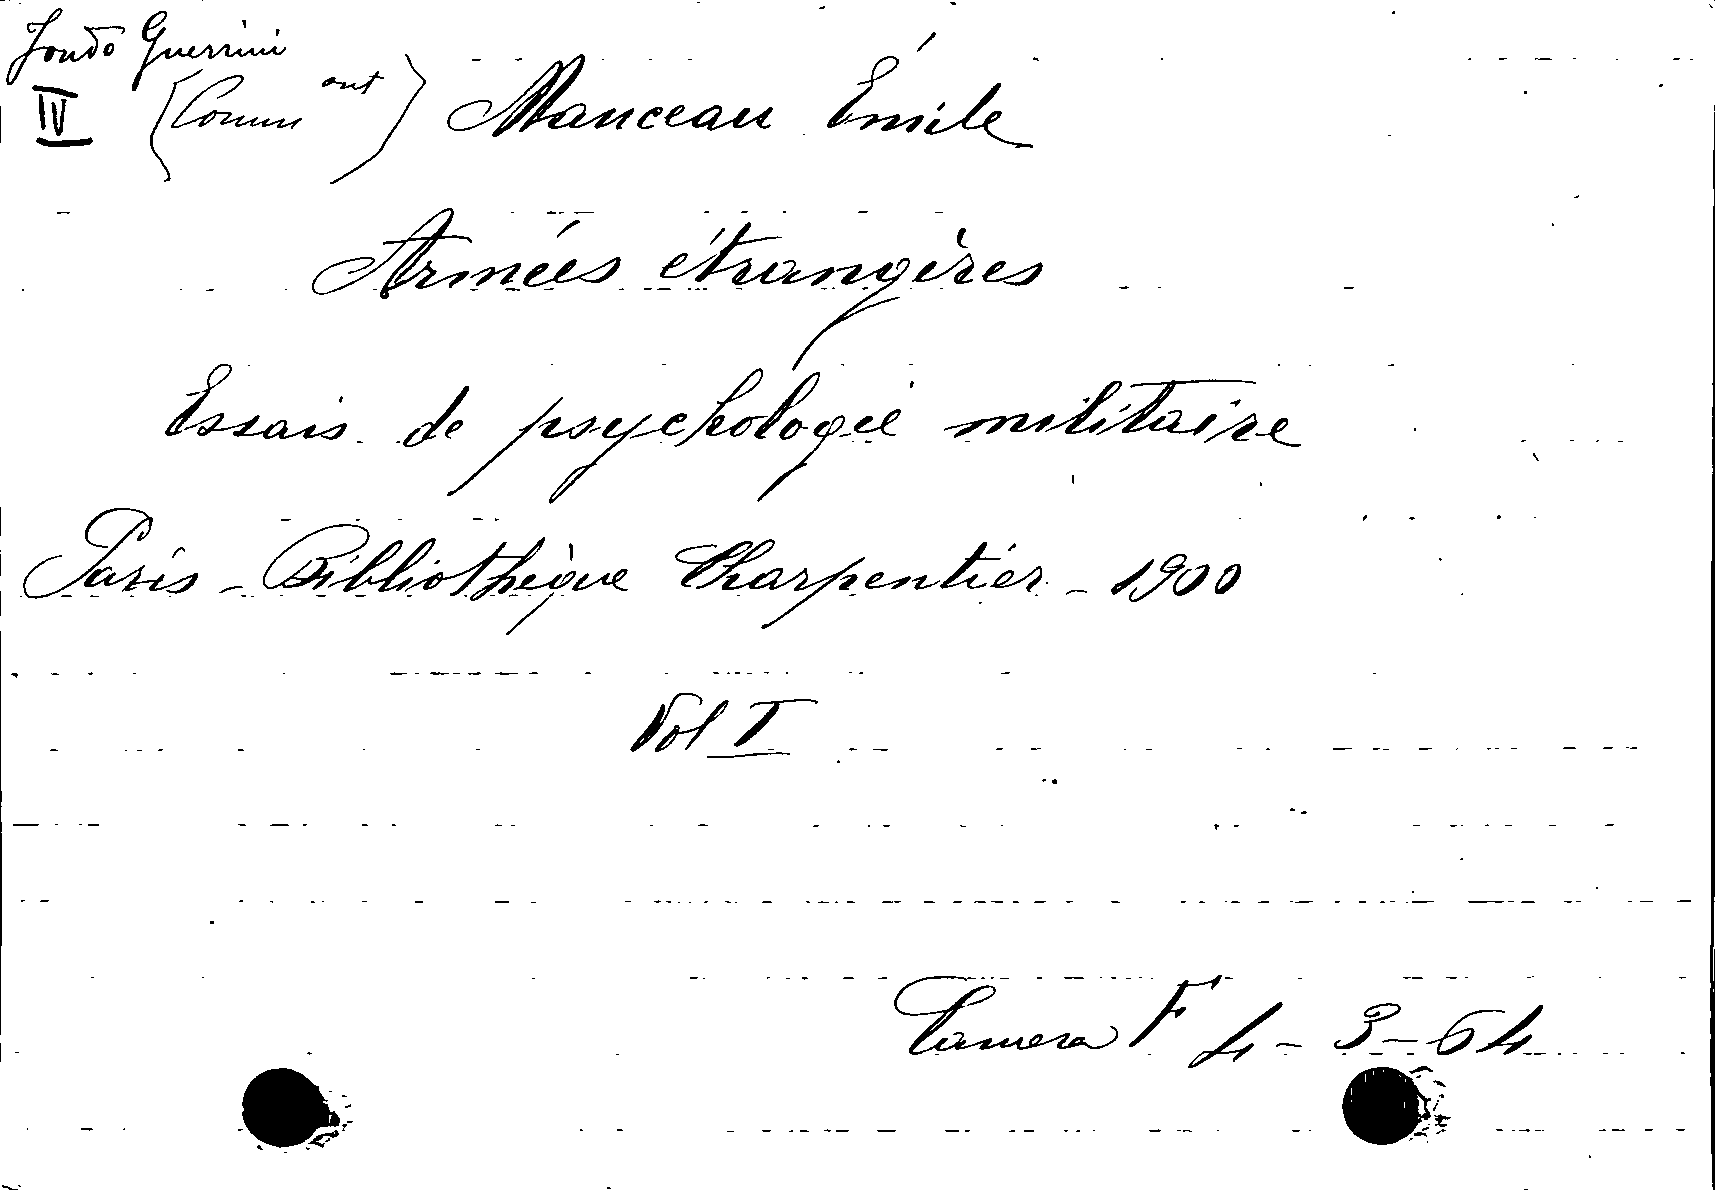 Fondo Guerrini
IV (Comm ant) Manceau Émile
Armées étrangères
Essais de psychologie militaire
Paris - Bibliothèque Charpentier - 1900
Vol I
Camera F 4-3-64